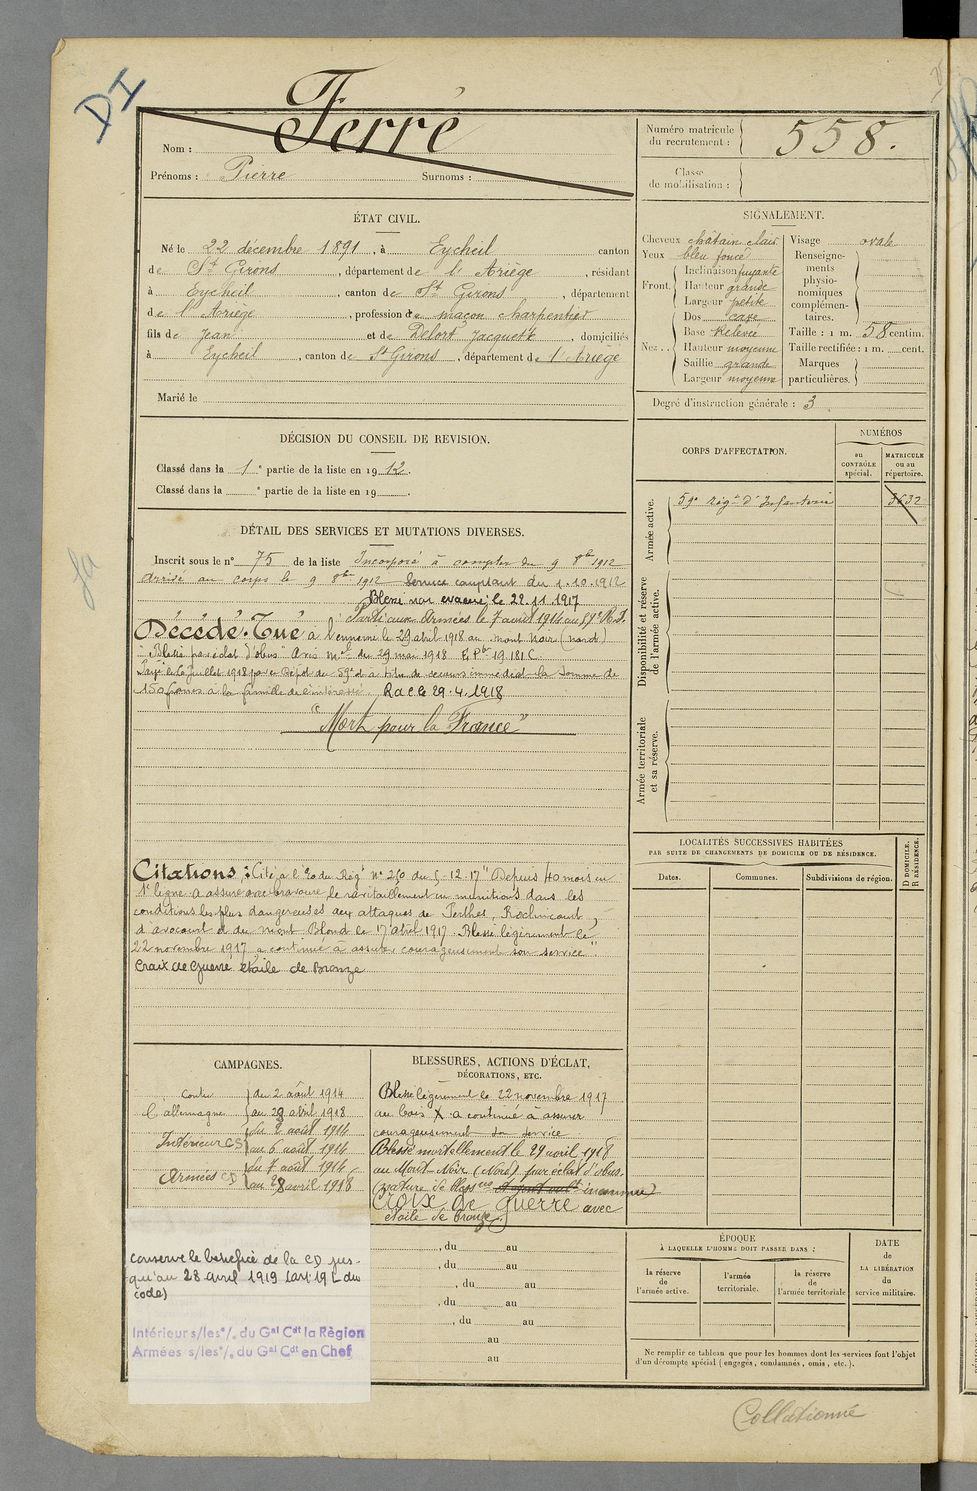 DI
Nom : Ferré
Prénoms : Pierre Surnoms :
Numéro matricule du recrutement : 558.
Classe de mobilisation :
ÉTAT CIVIL.
Né le 22 décembre 1891, à Eycheil canton
de St Girons, département de l'Ariège, résidant
à Eycheil, canton de St Girons, département
de l'Ariège, profession de maçon charpentier
fils de Jean et de Delort Jacquette domiciliés
à Eycheil, canton de St Girons, département de l'Ariège
Marié le
SIGNALEMENT.
Cheveux châtain clair
Yeux bleu foncé
Front. Inclinaison fuyante
Hauteur grande
Largeur petite
Nez.. Dos cave
Base relevée
Hauteur moyenne
Saillie grande
Largeur moyenne
Visage ovale
Renseignements physionomiques complémentaires.
Taille : 1 m. 58 centim.
Taille rectifiée : 1 m. cent.
Marques particulières.
Degré d'instruction générale : 3
DÉCISION DU CONSEIL DE REVISION.
Classé dans la 1e partie de la liste en 1912.
Classé dans la e partie de la liste en 19 .
DÉTAIL DES SERVICES ET MUTATIONS DIVERSES.
Inscrit sous le n° 75 de la liste Incorporé à compter du 9 8bre 1912
Arrivé au corps le 9 8bre 1912 Service comptant du 1.10.1912
Blessé non evacué, le 22.11.1917
Parti aux Armées le 7 août 1914 au 59e R.I.
Décédé. Tué à l'ennemi le 29 avril 1918 au mont noir (nord)
"Blessé par éclat d'obus" Avis mel du 29 mai 1918
Payé le 6 Juillet 1918 par le Dépot du 59e d'I à titre de secours immédiat la somme de
150 francs à la famille de l'intéressé. Rac le 29.4.1918
"Mort pour la France"
CORPS D'AFFECTATION.
NUMÉROS
au CONTRÔLE spécial.
MATRICULE ou au répertoire.
Armée active.
59e régt d'Infanterie 3632
Disponibilité et réserve de l'armée active.
Armée territoriale et sa réserve.
LOCALITÉS SUCCESSIVES HABITÉES
PAR SUITE DE CHANGEMENTS DE DOMICILE OU DE RÉSIDENCE.
Dates.
Communes.
Subdivisions de région.
D DOMICILE.
R RÉSIDENCE.
Citations : Cité à l'Ordre du Régt N° 250 du 5-12-17 "Depuis 40 mois en
1e ligne a assuré avec bravoure le ravitaillement en munitions dans les
conditions les plus dangereuses aux attaques de Perthes, Roclincourt,
d'avocourt et du mont Blond le 17 avril 1917. Blessé légèrement le
22 novembre 1917, a continué à assurer courageusement son service".
Croix de Guerre étoile de Bronze
CAMPAGNES.
Contre l'allemagne du 2 août 1914
au 29 avril 1918
Intérieur CS du 2 août 1914
au 6 août 1914
Armées CD du 7 août 1914
au 28 avril 1918
BLESSURES, ACTIONS D'ÉCLAT,
DÉCORATIONS, ETC.
Blessé légèrement le 22 novembre 1917
au bois X a continué à assurer
courageusement son service
Blessé mortellement le 29 avril 1918
au Mont Noir (Nord) par éclat d'obus.
(nature de bless inconnue)
Croix de guerre avec
étoile de bronze.
conserve le bénéfice de la CD jus-
qu'au 28 avril 1919 (art. 19 L du
code)
Intérieur s/les °/. du Gal Cdt la Règion
Armées s/les °/. du Gal Cdt en Chef
, du au
, du au
, du au
, du au
, du au
au
au
ÉPOQUE
À LAQUELLE L'HOMME DOIT PASSER DANS :
la réserve de l'armée active.
l'armée territoriale.
la réserve de l'armée territoriale
DATE de LA LIBÉRATION du service militaire.
Ne remplir ce tableau que pour les hommes dont les services font l'objet
d'un décompte spécial (engagés, condamnés, omis, etc.).
Collationné